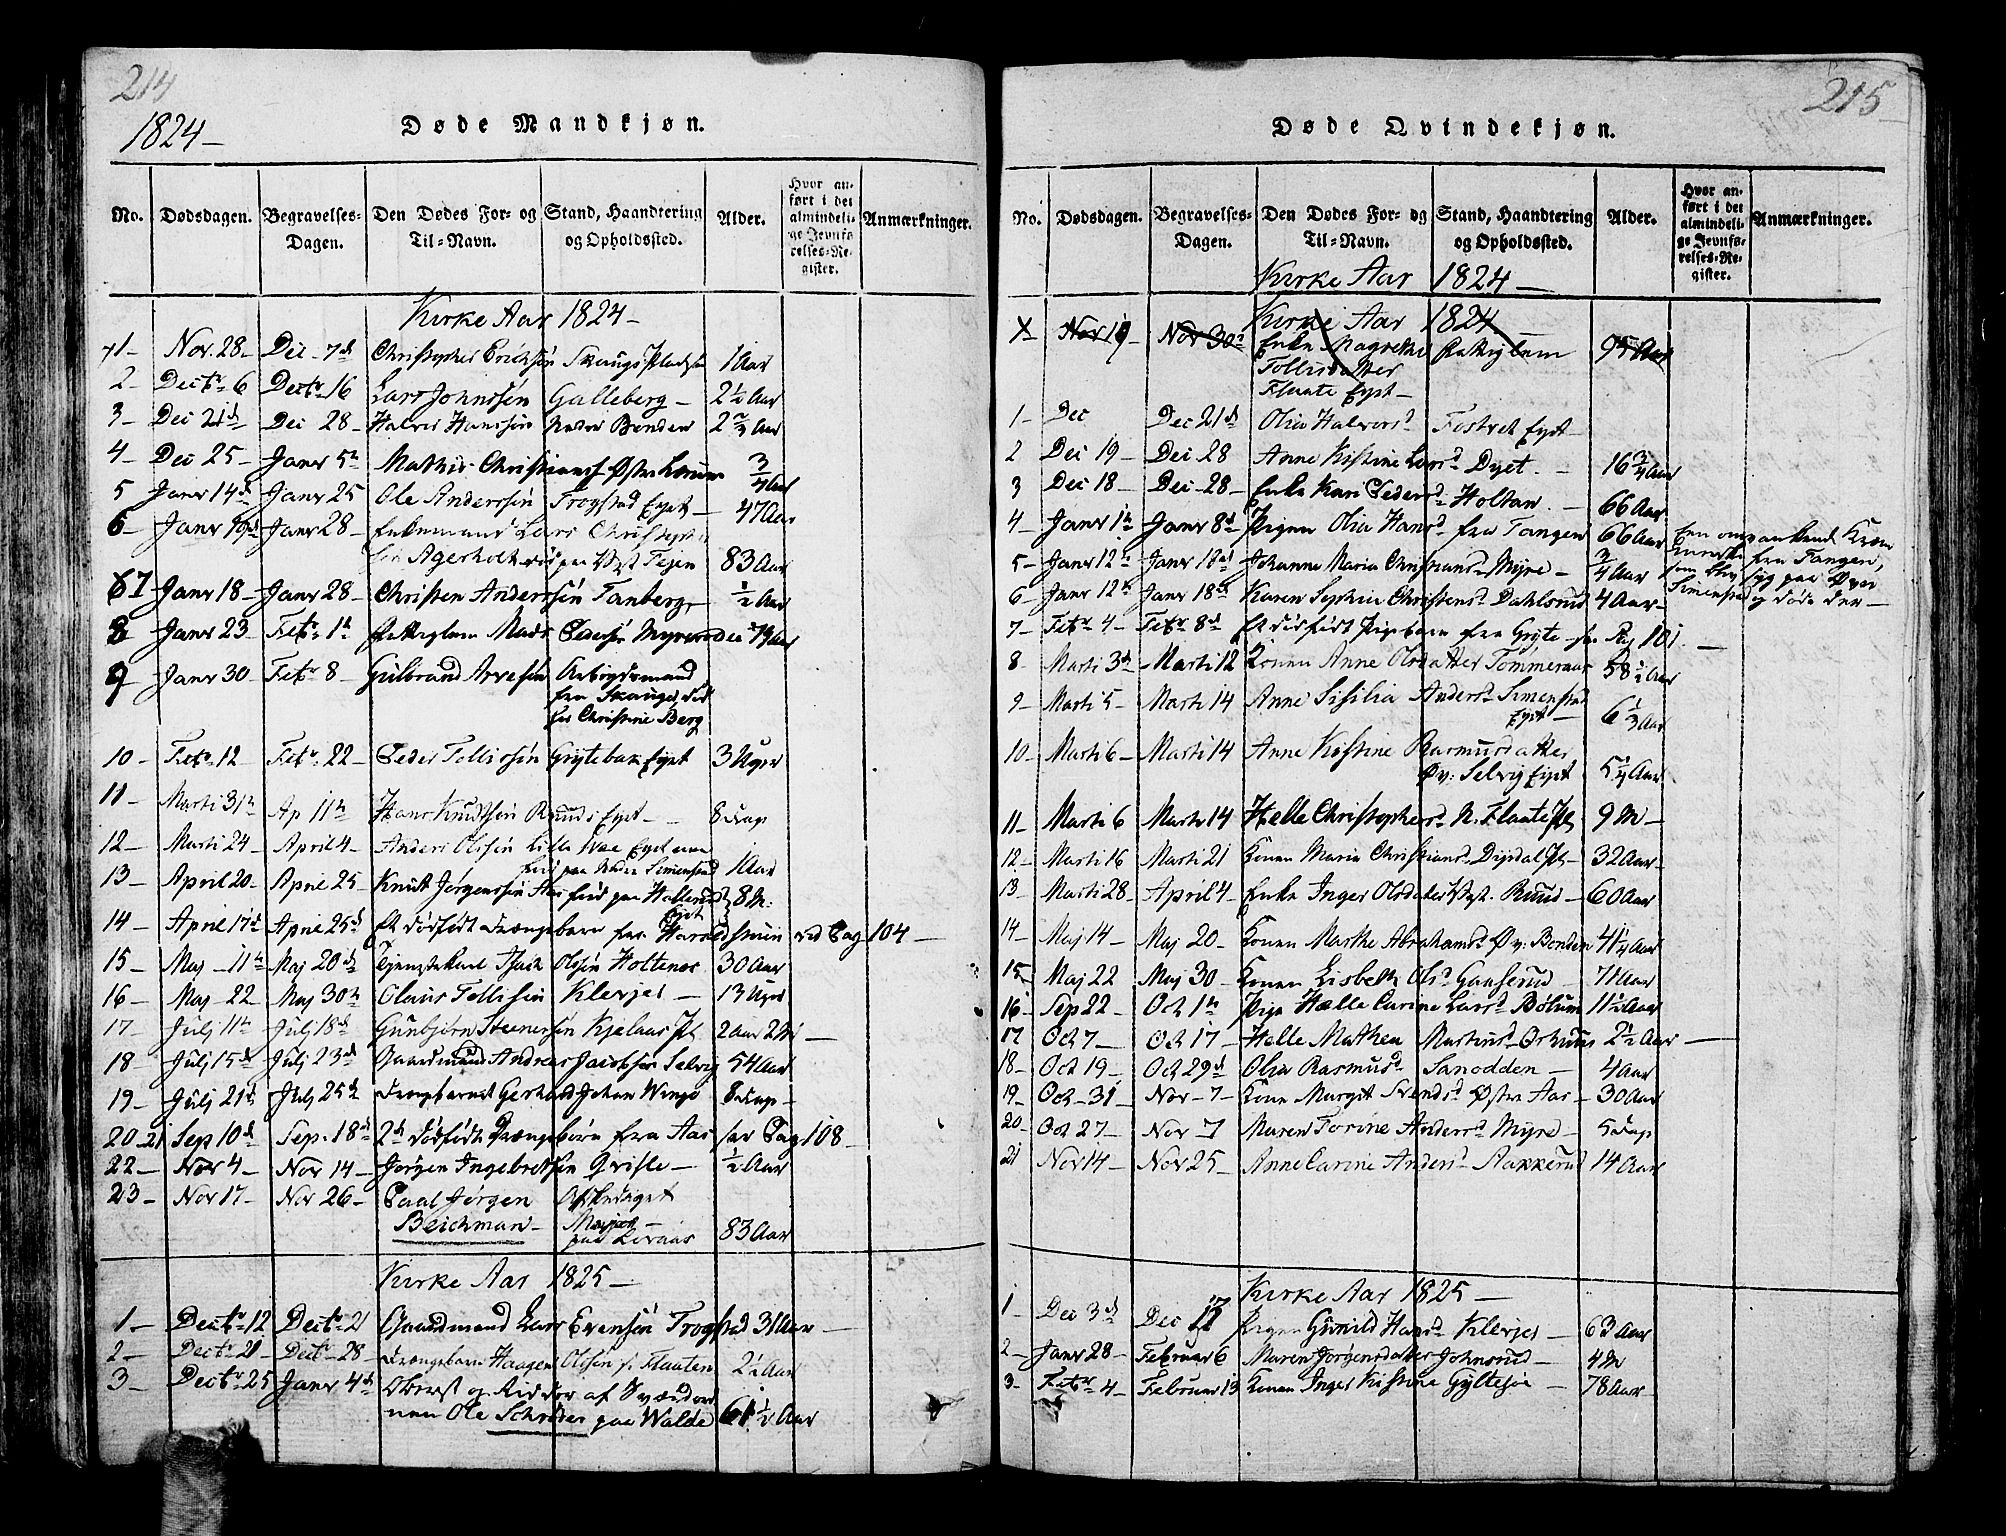 214
1824 –
Døde Mandkjøn.
No. Dødsdagen. Begravelses-Dagen. Den Dødes For- og Til-Navn. Stand, Haandtering og Opholdssted. Alder. Hvor anført i det almindelige Jevnførelses-Register. Anmærkninger.
Kirke Aar 1824 –
1 – Nov. 28 – Dec – 7d Christopher Erichsen 1 Aar
2 – Dectr 6 Dectr 16 Lars Johnssen Galleberg – 2½ Aar
3 – Dec 21d Dec 28 – Halvor Hanssen Nedre Bonden 2 Aar
4 – Dec 25 – Janr 5te Mathis Christians Østre ¾ Aar
5 Janr 14d Janr 25 Ole Anderssen Trogstad Eyet – 47 Aar
6 – Janr 19d Janr 28 – Enkemand Lars Christophersen
Agerholt død paa Vest Fejen 83 Aar
7 Janr 18 – Janr 28 – Christen Anderssen Tanberg ½ Aar
8 Janr 23 Febr. 1te Mads Pedersen 79 Aar
9 Janr 30 Febr 8 – Gulbrand Arvesen Arbejdsmand
fra Skauge, død
hos Christine Berg
10 – Febr. 12 Febr. 22 – Peder Tollefssen Grytebak Eyet 3 Uger
11 – Marti 31te Ap 11te Hans Knudssen Ruuds Eyet – 8 Dage
12 – Marti 24 – April 4 – Anders Olssen Lille Eyet men
fød paa Nedre Simenstad 1 Aar
13 – April 20 – April 25 Knut Jørgenssen Aas fød paa Hallerud Eyet 8 M:
14 – April 17d April 25d Et dødfødt Drængebarn fra Haraldstuen vid Pag 104 –
15 – Maj – 11te Maj 20de Tjenestekarl Isach Olssen Holtenes 30 Aar
16 – Maj 22 Maj 30te Olaus Tollefsen Klevjer – 13 Uger
17 – Julj 11te Julj 18d Gunbjørn Steenersen Kjelaas Pl 2 Aar 2 M
18 Julj 15d Julj 23d Gaardmand Andreas Jacobsen Selvig 54 Aar
19 – Julj 21d Julj 25d Drengebarnet Gerhard Johan Winge 8 Dage –
20 – 21 Sep 10d Sep. 18d 2d dødfødte Drængebørn fra Aas see Pag 108 –
22 – Nov 4 – Nov 14 – Jørgen Ingebretsen Qvisle – ½ Aar
23 – Nov 17 – Nov 26 – Paal Jørgen Afskediget
Beichman – Major –
paa 83 Aar
Kirke Aar 1825 –
1 – Dectr 12 Dectr 21 Gaardmand Lars Evensen Trogstad 31 Aar –
2 – Dectr 21 Dectr 28 – Drængebarn Haagen Olssen Flaaten 2½ Aar
3 – Dectr 25 Janr 4d Oberst og Ridder af Sværdor
nen Ole Schrøder paa Walde 61½ Aar
215
Døde Qvindekjøn.
No. Dødsdagen. Begravelses-Dagen. Den Dødes For- og Til-Navn. Stand, Haandtering og Opholdssted. Alder. Hvor anført i det almindelige Jevnførelses-Register. Anmærkninger.
Kirke Aar 1824 –
Kirke Aar 1824
Nov 19 Nov 30 Enke Magrethe 95 Aar
Tollefsdatter
Flaate Eyet –
1 – Dec Dec 21d Olia Halvors Eyet –
2 Dec 19 – Dec 28 Anne Kistine Lars Dyet. – 16¾ Aar
3 Dec 18 – Dec – 28 – Enke Kari Peders Holtan – 66 Aar
4 – Janr 1te Janr 8d Pigen Olia Hans fra Tangen 66 Aar En omvankende
fra Tangen,
som blev syg paa Øvre
Simenstad og døde der –
5 – Janr 12te Janr 18d Johanne Maria Christians Myre – ¾ Aar
6 – Janr 12te Janr 18d Karen Sophia Christens Dahlsrud 4 Aar –
7 – Febr 4 – Febr 8d Et dødfødt Pigebarn fra Gryte – see Pag 101 –
8 – Marti 3d – Marti 12 Konen Anne Olsdatter Tømmeraas 58½ Aar
9 – Marti 5 – Marti 14 Anne Sisilia Anders Simenstad
Eyet – 6⅓ Aar
10 – Marti 6 – Marti 14 Anne Kistine Rasmusdatter
Øv: Selvig Eyet 5¼ Aar
11 – Marti 6 Marti 14 Helle Christophers N. Flaate Pl 9 M –
12 – Marti 16 Marti 21 Konen Maria Christians Dysdal Pl – 32 Aar –
13 – Marti 28 April 4 – Enke Inger Olsdatter Vest. Ruud – 60 Aar
14 – Maj 14 – Maj 20 – Konen Marthe Abrahams Øv: Bonden 41¼ Aar
15 – Maj 22 Maj 30 – Konen Lisbeth Ols Ganserud – 71 Aar
16 – Sep 22 – Oct 1te Pige Hælle Carine Lars Bølum 11½ Aar
17 Oct 7 – Oct 17 – Helle Mathea Martinus Orhuus 2½ Aar –
18 – Oct 19 – Oct 29d Olia Rasmus Sanodden – 4 Aar
19 – Oct – 31 – Nov – 7 – Kone Margit Svends Østre Aas – 30 Aar
20 – Oct 27 – Nov 7 Maren Torine Anders Myre – 5 Dage
21 Nov 14 – Nov 25 – Anne Carine Anders Aakkerud 14 Aar
Kirke Aar 1825 –
1 – Dec 3d – Dec 17 Pigen Gunild Hans Klevjer – 63 Aar
2 – Janr 28 – Februar 6 Maren Jørgensdatter Johnsrud – 4 M
3 – Febr 4 – Februar 13 Konen Inger Kistine Gyltesøe – 78 Aar –